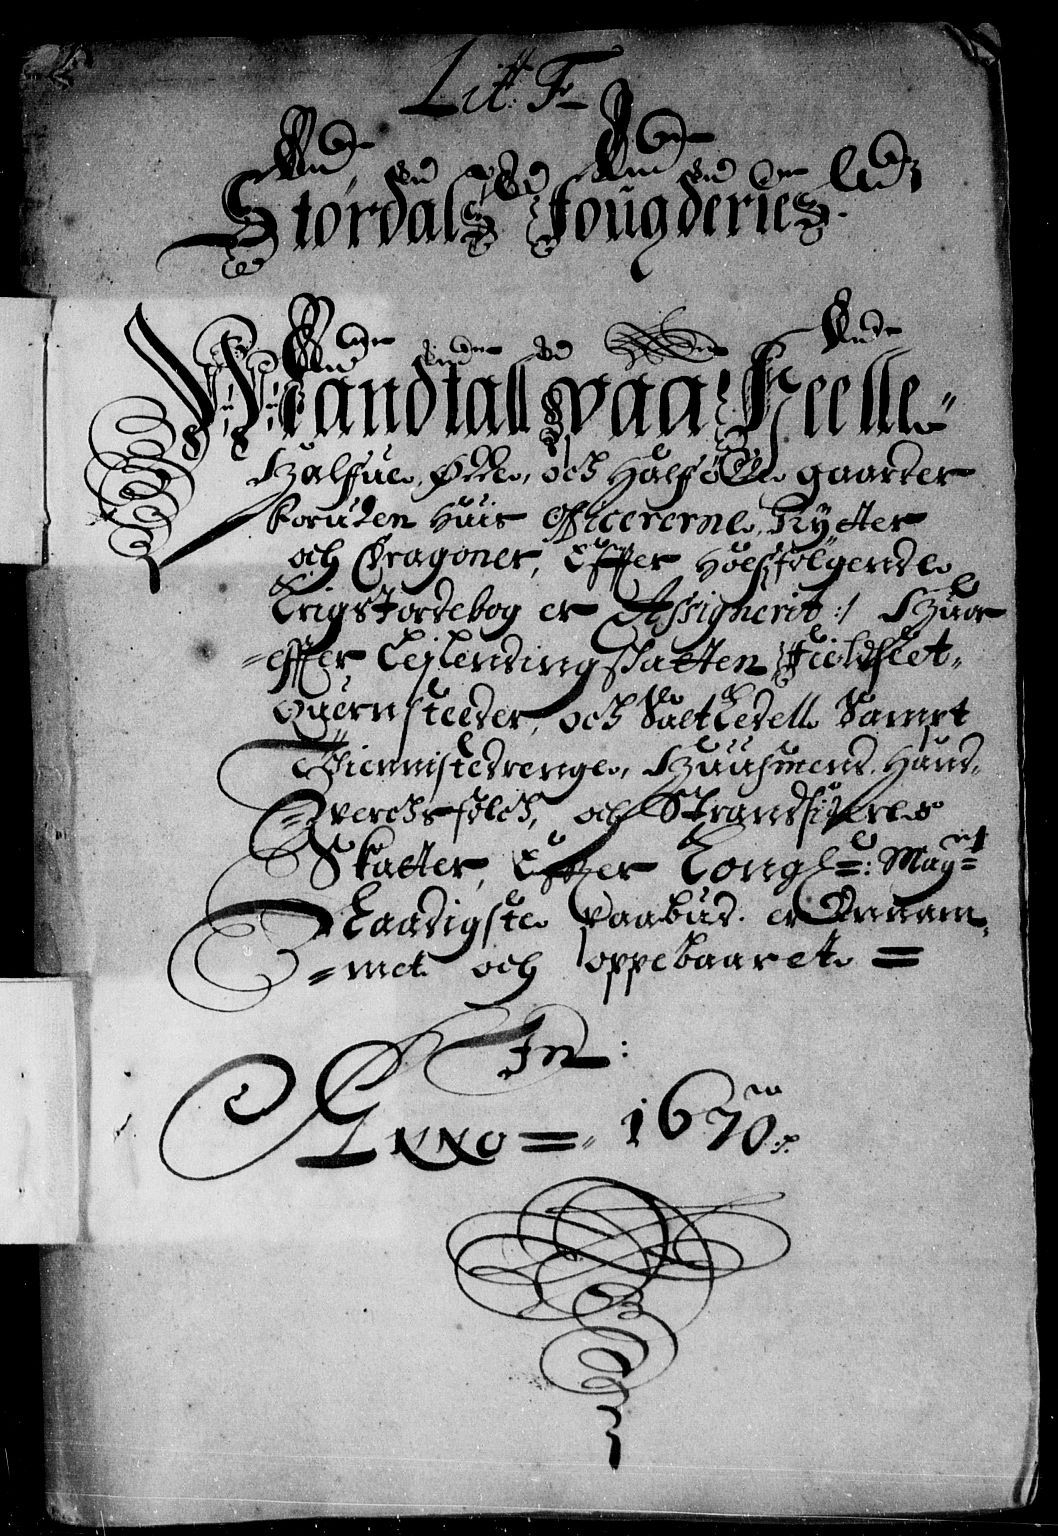 Litt: F
Størdals Fougderies
Mandtall paa Heelle
Halfue, Øde, och Halføde gaarder
foruden huis Officererne, Rytter
och Dragoner, Effter hoesfølgende
Krigs Jordebog er Assignerit :/ Huor
effter Leylendingschatten, Field sæt,
Quernsteeder, och Saltkedell Sampt
Thienniste drenge, Huusmend, Hand,
verchsfolch, och Strandsideres
Skatter, Effter Kongl: May:tt
Naadigste paabud er Annam,
met och oppebaaret
In
Anno 1670